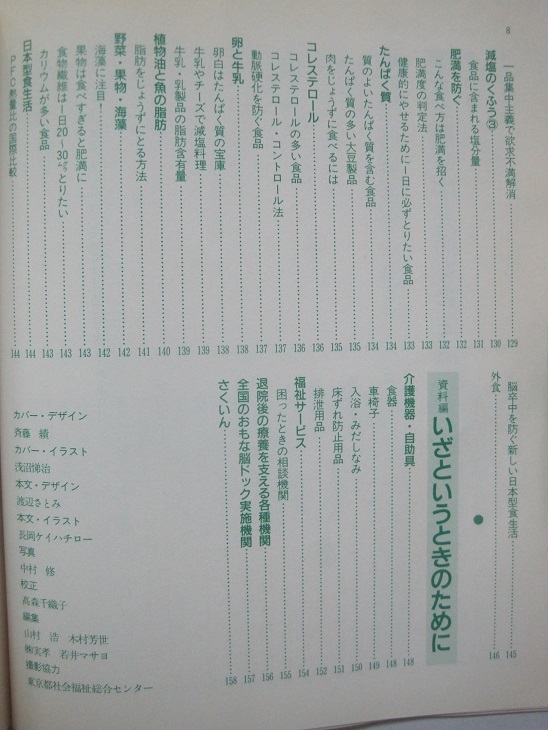 8
一品集中主義で欲求不満解消 129
減塩のくふう③ 130
食品に含まれる塩分量 131
肥満を防ぐ 132
こんな食べ方は肥満を招く 132
肥満度の判定法 133
健康的にやせるために1日に必ずとりたい食品 133
たんぱく質 134
質のよいたんぱく質を含む食品 134
たんぱく質の多い大豆製品 135
肉をじょうずに食べるには 135
コレステロール 136
コレステロールの多い食品 136
コレステロール・コントロール法 137
動脈硬化を防ぐ食品 137
卵と牛乳 138
卵白はたんぱく質の宝庫 138
牛乳やチーズで減塩料理 139
牛乳・乳製品の脂肪含有量 139
植物油と魚の脂肪 140
脂肪をじょうずにとる方法 141
野菜・果物・海藻 142
海藻に注目! 142
果物は食べすぎると肥満に 143
食物繊維は1日20~30㌘とりたい 143
カリウムが多い食品 143
日本型食生活 144
PFC熱量比の国際比較 144
脳卒中を防ぐ新しい日本型食生活 145
外食 146
●
資料編 いざというときのために
介護機器・自助具 148
食器 148
車椅子 149
入浴・みだしなみ 150
床ずれ防止用品 151
排泄用品 152
福祉サービス 154
困ったときの相談機関 155
退院後の療養を支える各種機関 156
全国のおもな脳ドック実施機関 157
さくいん 158
カバー・デザイン
斉藤 績
カバー・イラスト
浅沼悌治
本文・デザイン
渡辺さとみ
本文・イラスト
長岡ケイハチロー
写真
中村 修
校正
高森千織子
編集
山村 浩 木村芳世
㈱実孝 若井マサヨ
撮影協力
東京都社会福祉総合センター